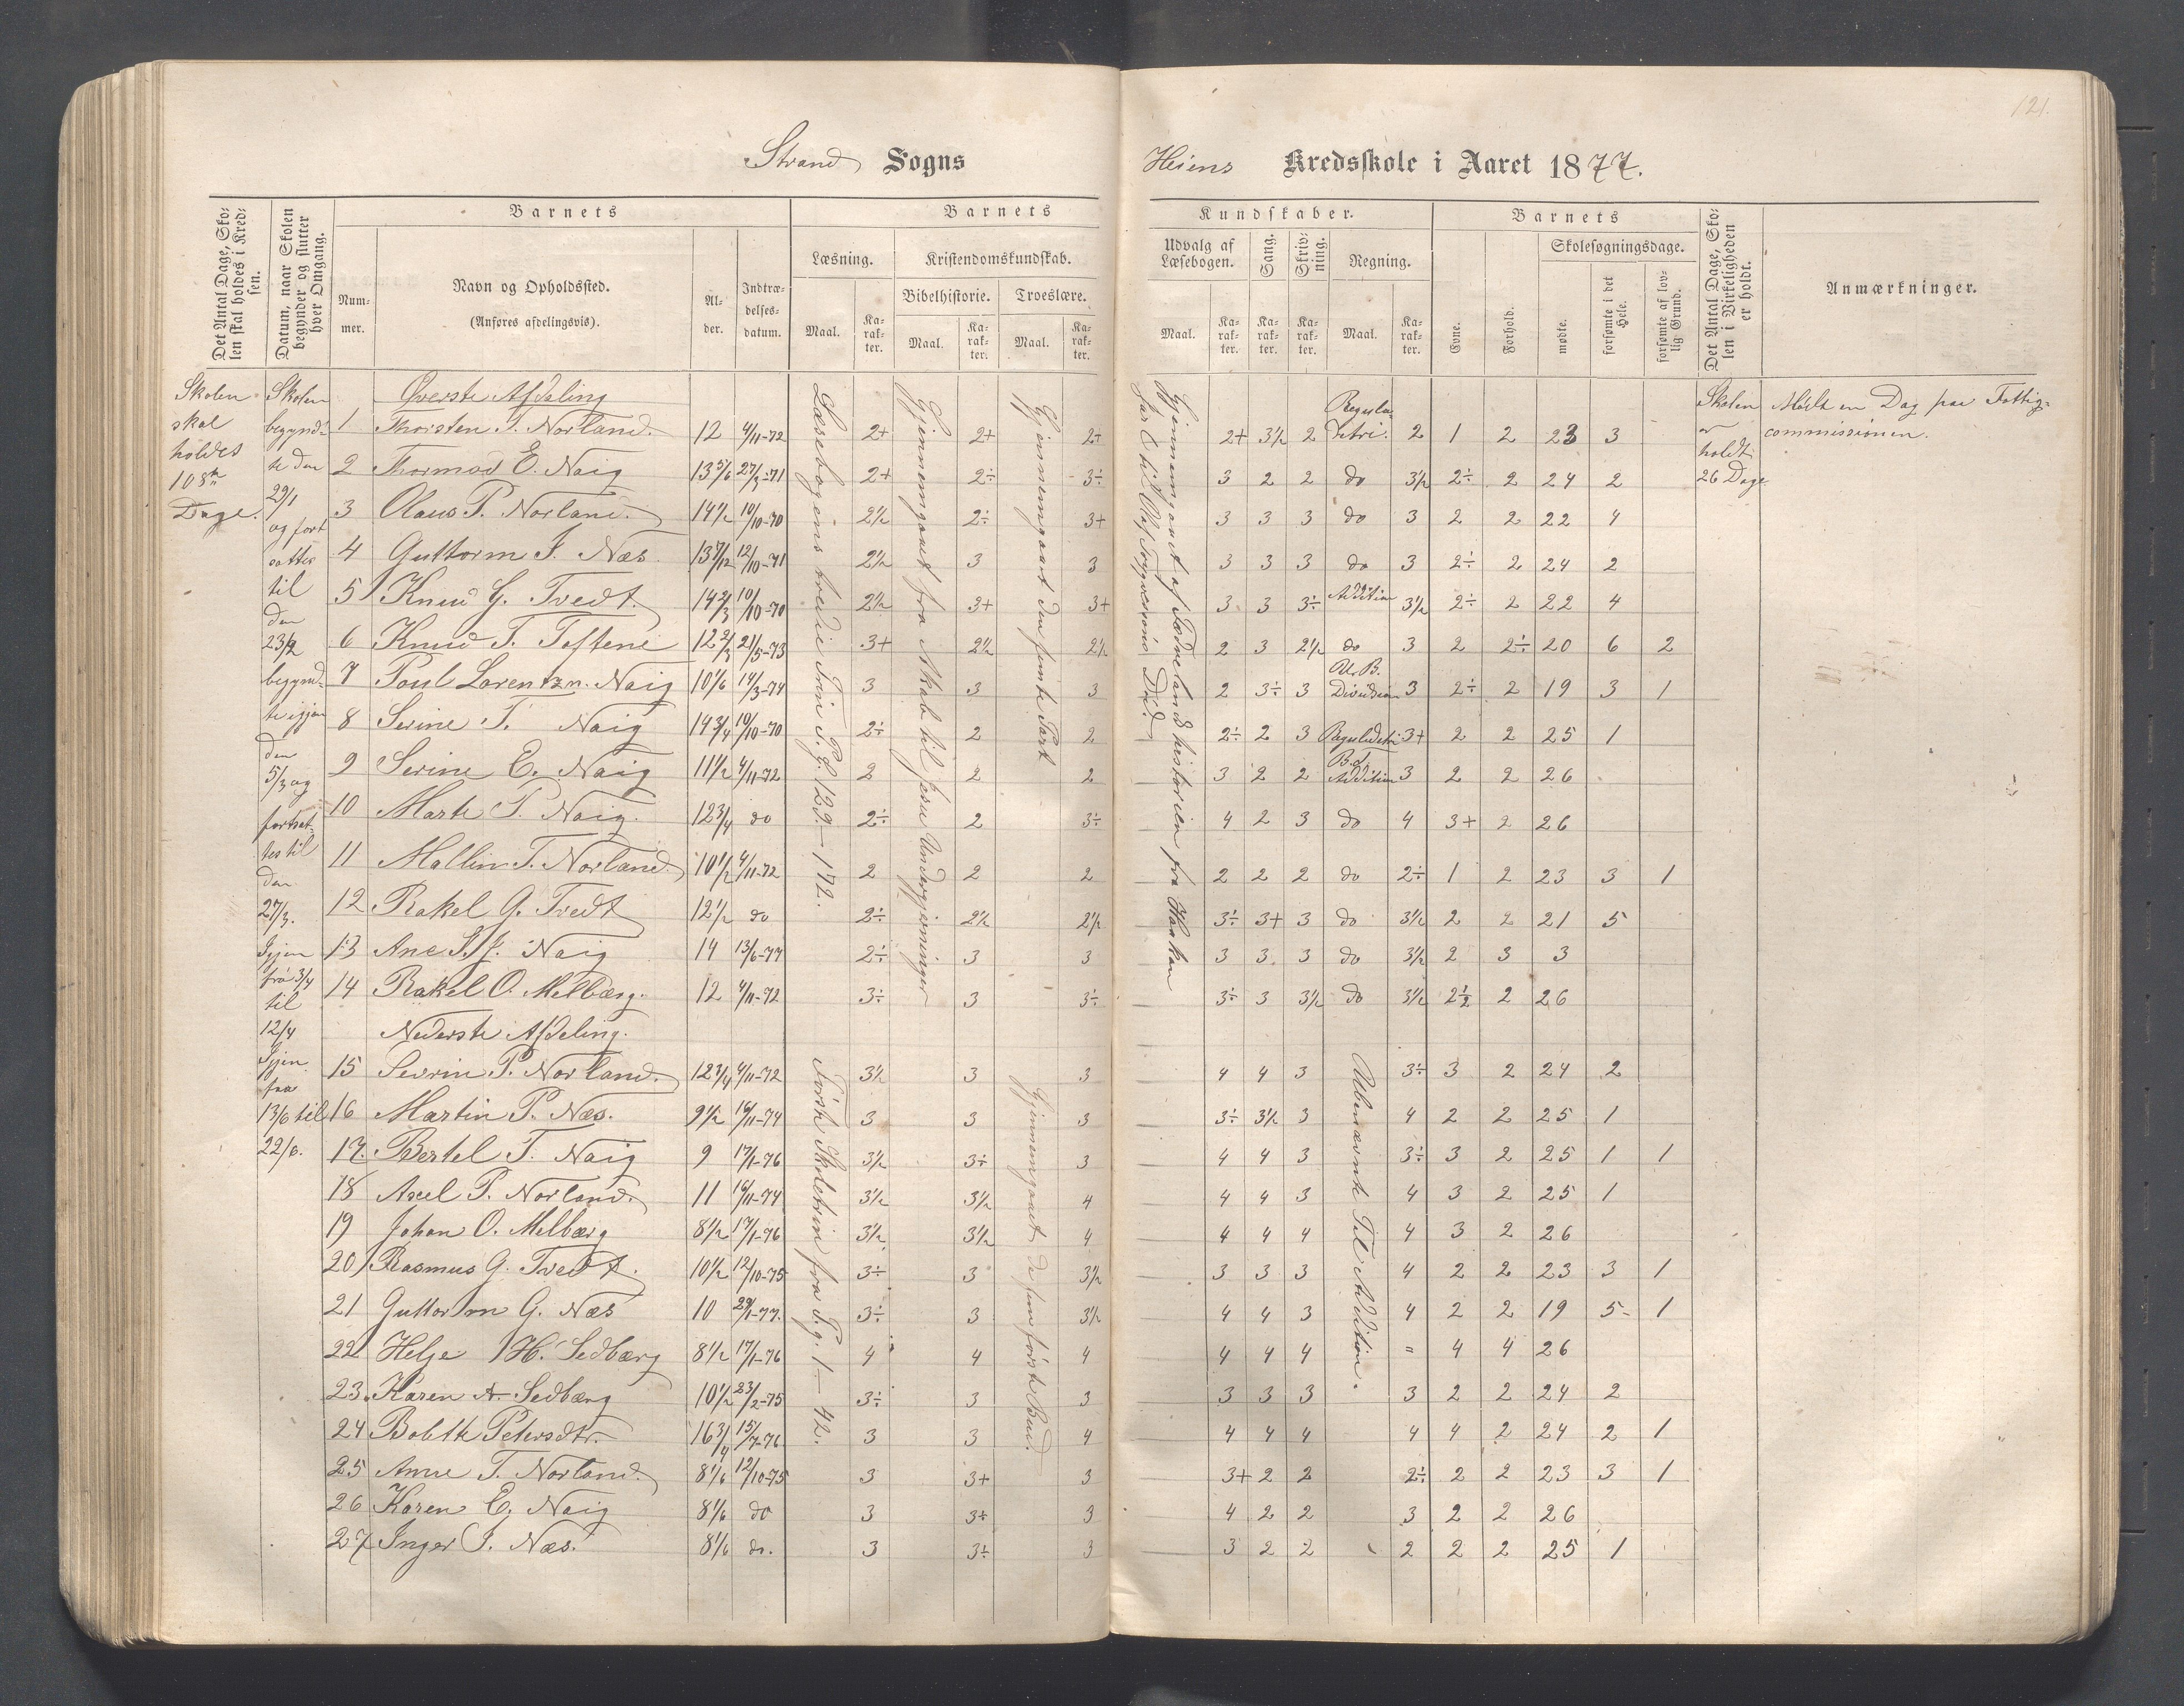 121.
Strand Sogns
Heiens Kredsskole i Aaret 1877.
Det Antal Dage, Skolen skal holdes i Kredsen.
Datum, naar Skolen begynder og slutter hver Omgang.
Barnets
Nummer.
Navn og Opholdssted.
(Anføres afdelingsvis).
Alder.
Indtrædelsesdatum.
Barnets
Kundskaber.
Læsning.
Kristendomskundskab.
Bibelhistorie.
Troeslære.
Maal.
Karakter.
Maal.
Karakter.
Maal.
Karakter.
Udvalg af Læsebogen.
Sang.
Skrivning.
Regning.
Maal.
Karakter.
Karakter.
Karakter.
Maal.
Karakter.
Barnets
Evne.
Forhold.
Skolesøgningsdage.
mødte.
forsømte i det Hele.
forsømte af lovlig Grund.
Det Antal Dage, Skolen i Virkeligheden er holdt.
Anmærkninger.
Skolen
skal
holdes
108
Dage.
Skolen
begyndte
den
29/1
og fort
sattes
til
den
23/2
begyndte
igjen
den
5/3 og
fortsattes
til
den
27/3.
Igjen
fra 3/4
til
12/4
Igjen
fra
13/6 til
22/6.
Læsebogens tredie Trin P.g. 129-172.
Gjennemgaaet fra Skab til Jesu Undergjerninger
Gjennemgaaet den femte Part
Gjennemgaaet af Fædrelandshistorien fra Haakon
Jarl til Olaf Trygvesøns Død.
Øverste Afdeling
1 Thorsten T. Norland. 12 4/11-72 2+ 2+ 2+ 2+ 3½ 2 Reguladetri. 2 1 2 23 3
2 Thormod E. Naig 13 5/6 27/3-71 2+ 2÷ 3÷ 3 2 2 do 3½ 2÷ 2 24 2
3 Olaus P. Norland. 14½ 10/10-70 2½ 2÷ 3+ 3 3 3 do 3 2 2 22 4
4 Guttorm J. Næs. 13 7/12 12/10-71 2½ 3 3 3 3 3 do 3 2÷ 2 24 2
5 Knud G. Tvedt. 14 2/3 10/10-70 2½ 3+ 3+ 3 3 3÷ Addition 3½ 2÷ 2 22 4
6 Knud T. Toftene 12 2/3 21/5-73 3+ 2½ 2½ 2 3 2½ do 3 2 2÷ 20 6 2
7 Poul Lorentzn. Naig 10 1/6 14/3-74 3 3 3 2 3÷ 3 Ub. Division 3 2÷ 2 19 3 1
8 Serine T. Naig 14 3/4 10/10-70 2÷ 2 2 2÷ 2 3 Reguladetri 3+ 2 2 25 1
9 Serine E. Naig 11½ 4/11-72 2 2 2 3 2 2 B.d. Addition 3 2 2 26
10 Marte P. Naig. 12 3/4 do 2÷ 2 3÷ 4 2 3 do 4 3+ 2 26
11 Mallin T. Norland. 10½ 4/11-72 2 2 2 2 2 2 do 2÷ 1 2 23 3 1
12 Rakel G. Tvedt 12½ do 2÷ 2½ 2½ 3÷ 3+ 3 do 3½ 2 2 21 5
13 Ane S.J. Naig 14 13/6-77 2÷ 3 3 3 3 3 do 3½ 2 3 3
14 Rakel O. Melbærg. 12 4/11-72 3÷ 3 3÷ 3÷ 3 3½ do 3½ 2½ 2 26
Nederste Afdeling.
Første Skoletrin fra P.g. 1-42.
Gjennemgaaet de fem første Bud.
Ubenævnte Tal Addition.
15 Sevrin P. Norland. 12 3/4 4/11-72 3½ 3 3 4 4 3 3÷ 3 2 24 2
16 Martin P. Næs. 9½ 16/11-74 3 3 3 3÷ 3½ 3 4 2 2 25 1
17. Bertel T. Naig 9 17/1-76 3½ 3÷ 3 4 4 3 3÷ 3 2 25 1 1
18 Axel P. Norland. 11 16/11-74 3½ 3½ 4 4 4 3 4 3 2 25 1
19 Johan O. Melbærg 8½ 17/1-76 3½ 3½ 4 4 4 4 4 3 2 26
20 Rasmus G. Tvedt. 10½ 12/10-75 3÷ 3 3½ 3 3 3 4 2 2 23 3 1
21 Guttorm G. Næs 10 29/1-77. 3÷ 3 3½ 4 4 3 4 2 2 19 5 1
22 Helge H. Sedbærg 8½ 17/1-76 4 4 4 4 4 4 " 4 4 26
23. Karen A. Sedbærg 10½ 23/2-75 3÷ 3 3 3 3 3 3 2 2 24 2
24 Bolette Petersdtr. 16 3/4 15/7-76 3 3 4 4 4 4 4 4 2 24 2 1
25 Anne T. Norland. 8 1/6 12/10-75 3 3+ 3 3+ 2 2 2÷ 2 2 23 3 1
26 Karen E. Naig 8 1/6 do 3 3÷ 3 4 2 2 3 2 2 26
27 Inger J. Næs. 8 1/6 do. 3 3÷ 3 3 2 2 2 2 2 25 1
Skolen
er
holdt
26 Dage
Mødte en Dag paa Fattig-
commissionen.